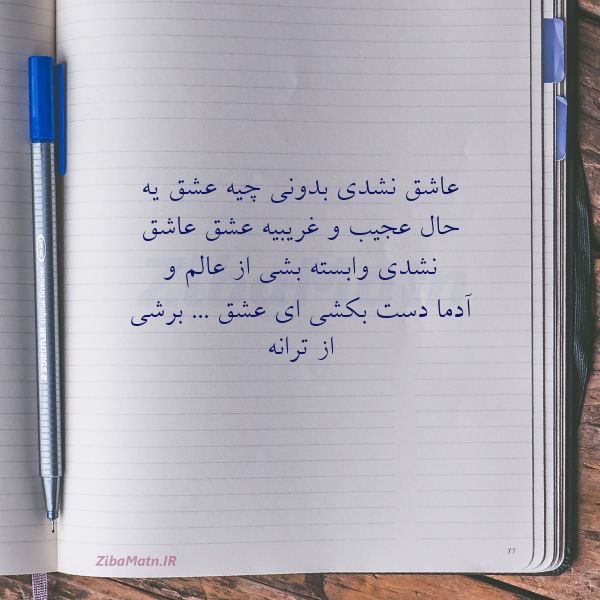 عاشق نشدی بدونی چیه عشق یه
حال عجیب و غریبیه عشق عاشق
نشدی وابسته بشی از عالم و
آدما دست بکشی ای عشق ... برشی
از ترانه
ZibaMatn.IR
77